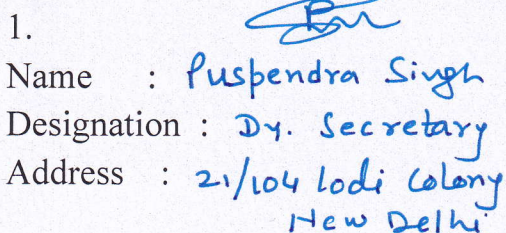 1.
Name : Puspendra Singh
Designation : Dy. Secretary
Address : 21/104 lodi Colony
New Delhi